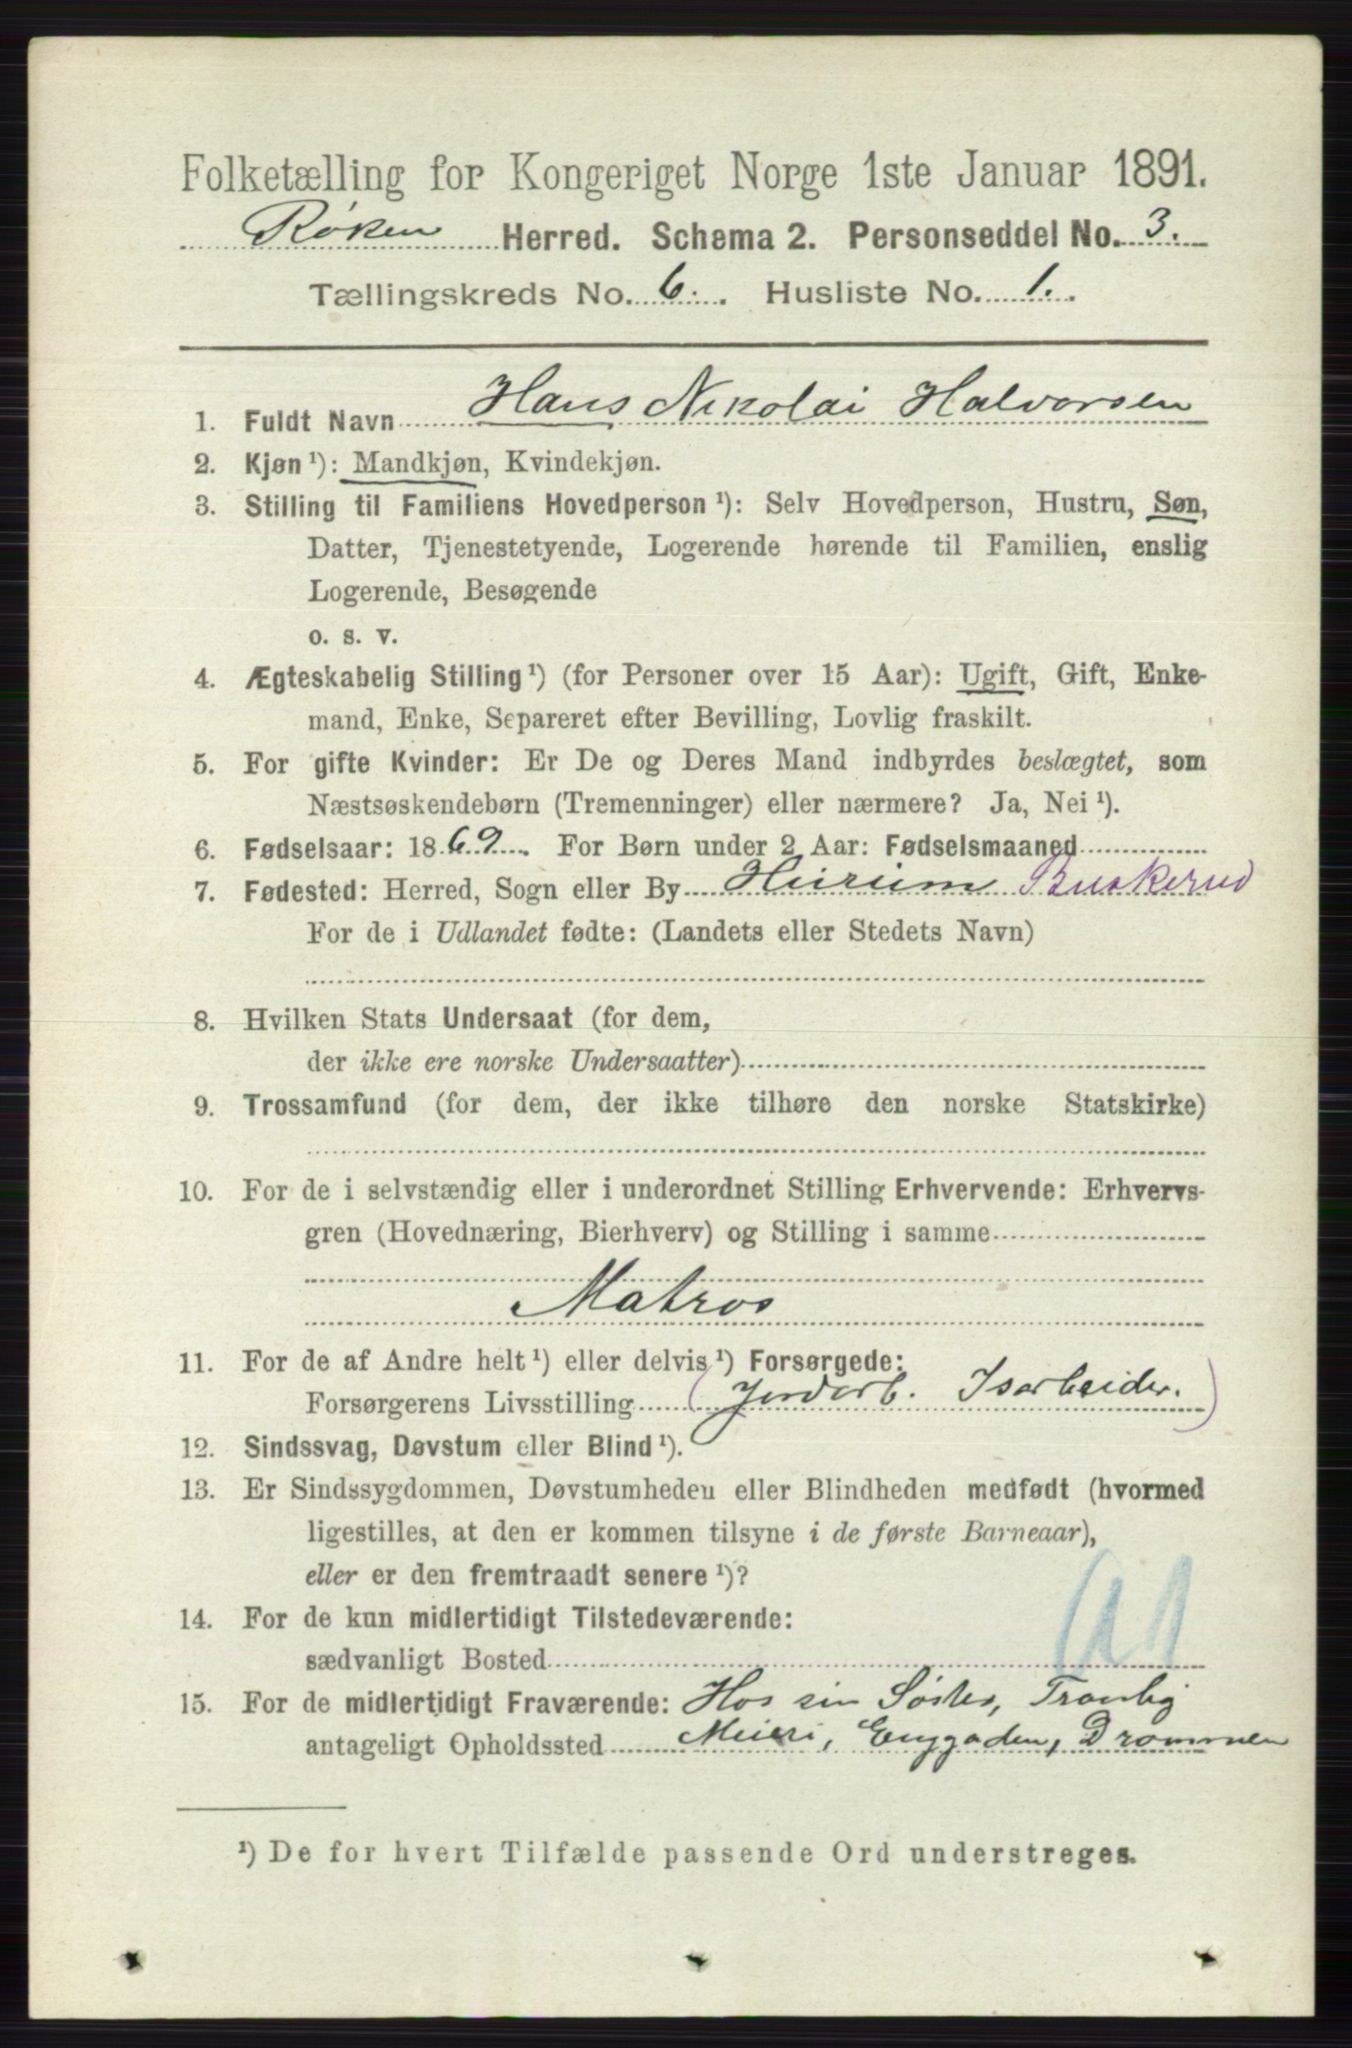 Folketælling for Kongeriget Norge 1ste Januar 1891.
Røken Herred. Schema 2. Personseddel No. 3.
Tællingskreds No. 6. Husliste No. 1.
1. Fuldt Navn Hans Nikolai Halvorsen
2. Kjøn¹): Mandkjøn, Kvindekjøn.
3. Stilling til Familiens Hovedperson¹): Selv Hovedperson, Hustru, Søn,
Datter, Tjenestetyende, Logerende hørende til Familien, enslig
Logerende, Besøgende
o. s. v.
4. Ægteskabelig Stilling¹) (for Personer over 15 Aar): Ugift, Gift, Enke-
mand, Enke, Separeret efter Bevilling, Lovlig fraskilt.
5. For gifte Kvinder: Er De og Deres Mand indbyrdes beslægtet, som
Næstsøskendebørn (Tremenninger) eller nærmere? Ja, Nei¹).
6. Fødselsaar: 1869. For Børn under 2 Aar: Fødselsmaaned
7. Fødested: Herred, Sogn eller By Hurum Buskerud
For de i Udlandet fødte: (Landets eller Stedets Navn)
8. Hvilken Stats Undersaat (for dem,
der ikke ere norske Undersaatter)
9. Trossamfund (for dem, der ikke tilhøre den norske Statskirke)
10. For de i selvstændig eller i underordnet Stilling Erhvervende: Erhvervs-
gren (Hovednæring, Bierhverv) og Stilling i samme
Matros
11. For de af Andre helt¹) eller delvis¹) Forsørgede:
Forsørgerens Livsstilling (Jordarb. Isarbeider.)
12. Sindssvag, Døvstum eller Blind¹).
13. Er Sindssygdommen, Døvstumheden eller Blindheden medfødt (hvormed
ligestilles, at den er kommen tilsyne i de første Barneaar),
eller er den fremtraadt senere¹)?
14. For de kun midlertidigt Tilstedeværende:
sædvanligt Bosted
15. For de midlertidigt Fraværende: Hos sin Søster, Tranby
antageligt Opholdssted Meieri, Enggaden, Drammen
¹) De for hvert Tilfælde passende Ord understreges.